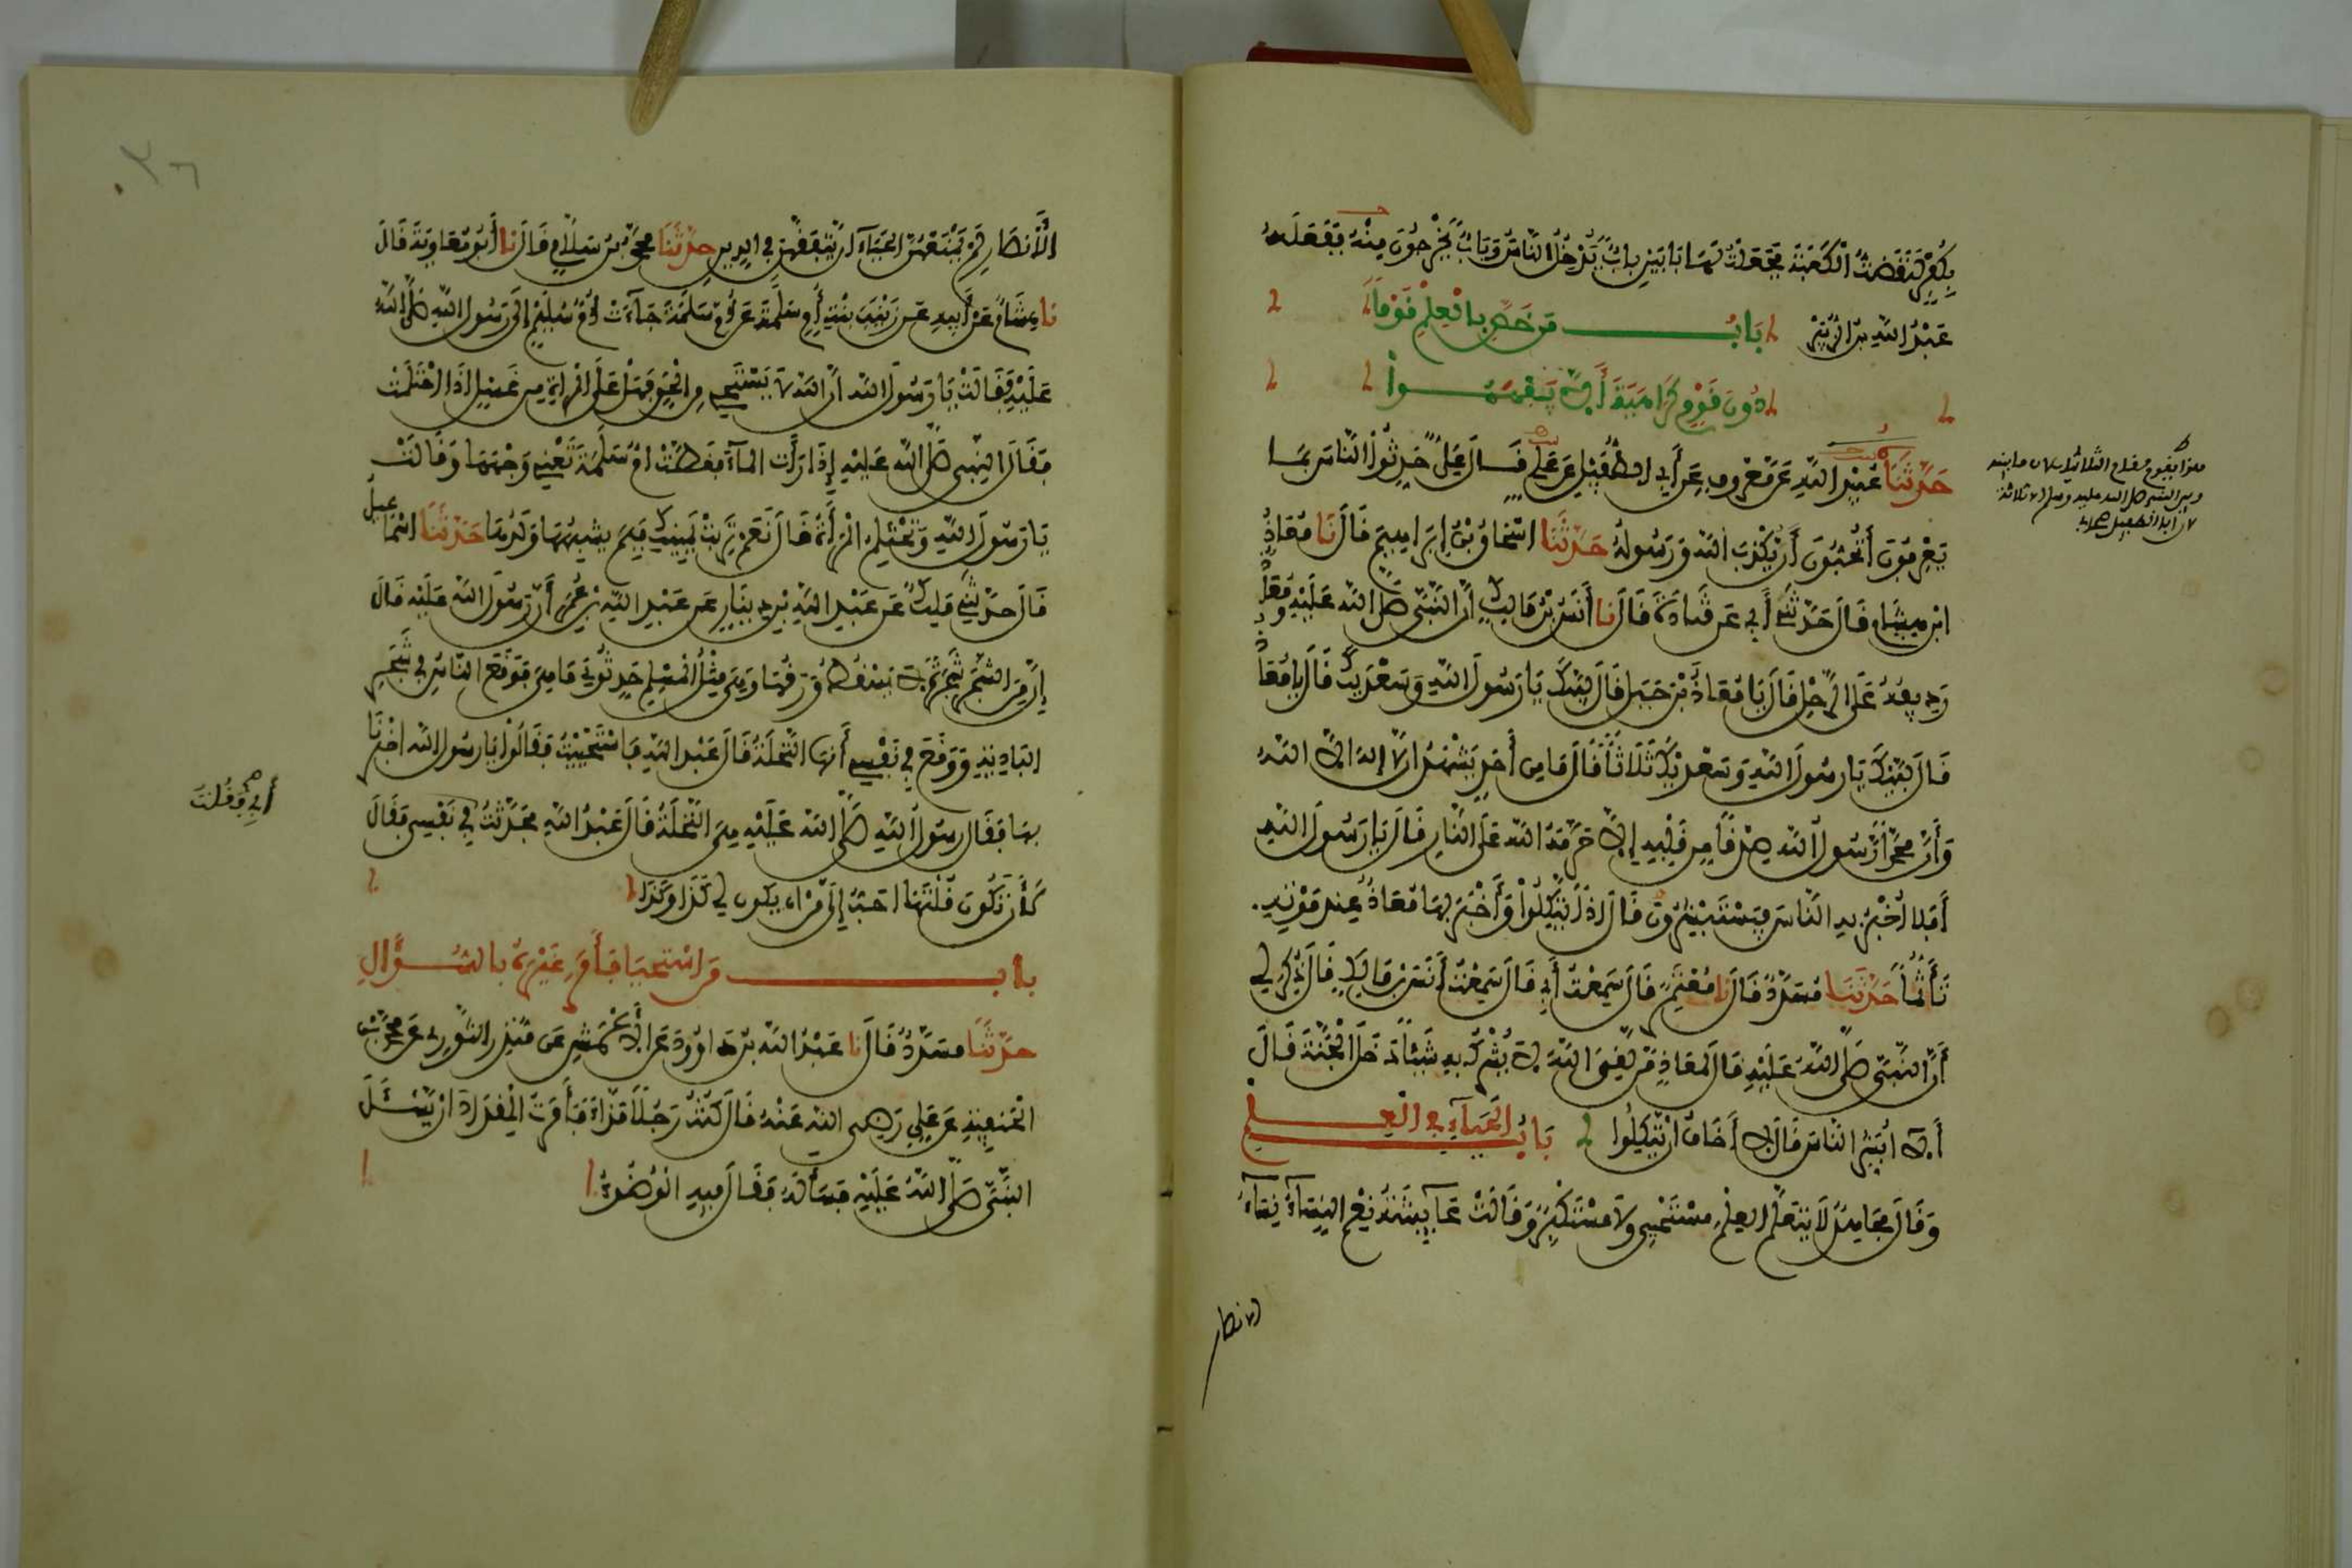 بِكُفْرٍ لَنَقَضْتُ الْكَعْبَةَ فَجَعَلْتُ لَهَا بَابَيْنِ بابٌ يَدْخُلُ النَّاسُ وَبَابٌ يَخْرُجُونَ مِنْهُ فَفَعَلَهُ
عَبْدُ اللهِ بن الزُّبَيْرِ بَابُ مَن خَصَّ بِالْعِلْمِ قَوْمًا
دُونَ قَوْمٍ كَرَاهِيَةَ أَن لا يَفْهَمُوا
حَدَّثَنَا عُبَيْد اللهِ عَن مَعْرُوفٍ عَن أَبِي الطُّفَيْلِ عَن عَلِيٍّ قَالَ عَلِيٌّ حَدِّثُوا النَّاسَ بِمَا
يَعْرِفُونَ أَتُحِبُّونَ أَنْ يُكَذَّبَ اللهُ وَرَسُولُهُ حَدَّثَنَا اسْحَاقُ بْنُ إِبْرَاهِيمَ قَالَ نَا مُعَاذُ
ابْن هِشَامٍ قَالَ حَدَّثَنِي أَبِي عَن قَتَادَةَ قَالَ نَا أَنَسُ بْنُ مَالِكٍ أَنَّ النَّبِيَّ صَلَّى اللهُ عَلَيْهِ وَمُعَاذٌ
رَدِيفُهُ عَلَى الرَّحْلِ قَالَ يَا مُعَاذُ بْنَ جَبَلٍ قَالَ لَبَّيْكَ يَا رَسُولَ اللهِ وَسَعْدَيْكَ قَالَ يَا مُعَاذُ
قَالَ لَبَّيْكَ يَا رَسُولَ اللهِ وَسَعْدَيْكَ ثَلَاثًا قَالَ مَا مِن أَحَدٍ يَشْهَدُ أن لا إله إلا اللهُ
وَأَنَّ مُحَمَّدًا رَسُولُ اللهِ صِدْقًا مِن قَلْبِهِ إِلاَّ حَرَّمَهُ اللهُ عَلَى النَّارِ قَالَ يَا رَسُولَ اللهِ
أَفَلا أُخْبِرُ بِهِ النَّاسَ فَيَسْتَبْشِرُونَ قَالَ إِذًا يَتَّكِلُوا وَأَخْبَرَ بِهَا مُعَاذٌ عِنْدَ مَوْتِهِ
تَأَثُّمًا حَدَّثَنَا مُسَدَّدٌ قَالَ نَا مُعْتَمِرٌ قَالَ سَمِعْتُ أَبِي قَالَ سَمِعْتُ أَنَسَ بْنَ مَالِكٍ قَالَ ذُكِرَ لِي
أَنَّ النَّبِيَّ صَلَّى اللهُ عَلَيْهِ قَالَ لِمُعَاذٍ مَن لَقِيَ اللهَ لا يُشْرِكُ بِهِ شَيْئًا دَخَلَ الْجَنَّةَ قَالَ
أَلا أُبَشِّرُ النَّاسَ قَالَ لا أَخَافُ أنْ يَتَّكِلُوا بَابُ الْحَيَاءِ فِي الْعِلْمِ
وَقَالَ مُجَاهِدٌ لَا يَتَعَلَّمُ الْعِلْمَ مُسْتَحْيِي وَلَا مُسْتَكْبِرٌ وَقَالَتْ عَائِشَةُ نِعْمَ النِّسَاءُ نِسَاءُ
الأنصار
هذا يقوم مقام الثلاثيات ما بينه
وبين النبي صلى الله عليه وسلم إلا ثلاثة
لأن أبا الطفيل
الْأَنصَارِ لَمْ يَمْنَعْهُنَّ الحَيَاءُ أَنْ يَتَفَقَّهْنَ فِي الدِينِ حَدَّثَنَا مُحَمَّدُ بنُ سَلَامٍ قَالَ نَا أَبُو مُعَاوِيَةَ قَالَ
نَا هِشَامٌ عَنْ أَبِيهِ عَن زَيْنَبَ بِنْتِ أُمِّ سَلَمَةَ عَن أُمِّ سَلَمَةَ جَاءَتْ أُمُّ سُلَيْمٍ إِلَى رَسُولِ اللهِ صَلَّى اللهُ
عَلَيْهِ فَقَالَتْ يَا رَسُولَ اللهِ إنَّ اللهَ لا يَسْتَحْيِي مِن الْحَقِّ فَهَلْ عَلَى الْمَرْأَةِ مِن غُسْلٍ إِذَا احْتَلَمَتْ
فَقَالَ النَّبِي صَلَّى اللهُ عَلَيْهِ إِذَا رَأَتِ المَاءَ فَغَطَّتْ أُمُّ سَلَمَةَ تَعْنِي وَجْهَهَا وَقَالَتْ
يَا رَسُولَ اللهِ وَتَحْتَلِمُ الْمَرْأَةُ قَالَ نَعَمْ تَرِبَتْ يَمِينُكِ فَبِمَ يُشْبِهُهَا وَلَدُهَا حَدَّثَنَا اسْمَاعِيلُ
قَالَ حَدَّثَنِي مَلِكٌ عَن عَبْدِ اللهِ بْنِ دِينَارٍ عَن عَبْدِ اللهِ بْنِ عُمَرَ أَنَّ رَسُولَ اللهِ عَلَيْهِ قَالَ
إِنَّ مِنَ الشَّجَرِ شَجَرَةً لا يَسْقُطُ وَرَقُهَا وَهِيَ مِثْلُ الْمُسْلِمِ حَدِّثُونِي مَا هِيَ فَوَقَعَ النَّاسُ فِي شَجَرِ
البَادِيَةِ وَوَقَعَ فِي نَفْسِي أَنَّهَا النَّخْلَةُ قَالَ عَبْدُ اللهِ فَاسْتَحْيَيْتُ فَقَالُوا يَا رَسُولَ اللهِ أَخْبِرْنَا
بِهَا فَقَالَ رَسُولُ اللهِ صَلَّى اللهُ عَلَيْهِ هِيَ النَّخْلَةُ قَالَ عَبْدُ اللهِ فَحَدَّثْتُ فِي نَفْسِي فَقَالَ
لَأَن تَكُونَ قُلْتَهَا أَحَبُّ إِلَيَّ مِن أن يَكُونَ لِي كَذَا وَكَذَا
بَاب مَن اسْتَحْيَا فَأَمَرَ غَيْرَهُ بِالسُّؤَالِ
حَدَّثَنَا مُسَدَّدٌ قَالَ نَا عَبْدُ اللهِ بْنُ دَاوُودَ عَن الأَعْمَشِ عَن مُنْذِرٍ الثَّوْرِيِّ عَن مُحَمَّدِ بْنِ
الْحَنَفِيَّةِ عَن عَلِيٍّ رَضِيَ اللهُ عَنْهُ قَالَ كُنْتُ رَجُلًا مَذَّاءً فَأَمَرْتُ الْمِقْدَادَ أنْ يَسْئَلَ
النَّبِيَّ صَلَّى اللهُ عَلَيْهِ فَسَأَلَهُ فَقَالَ فِيهِ الْوُضُوءُ